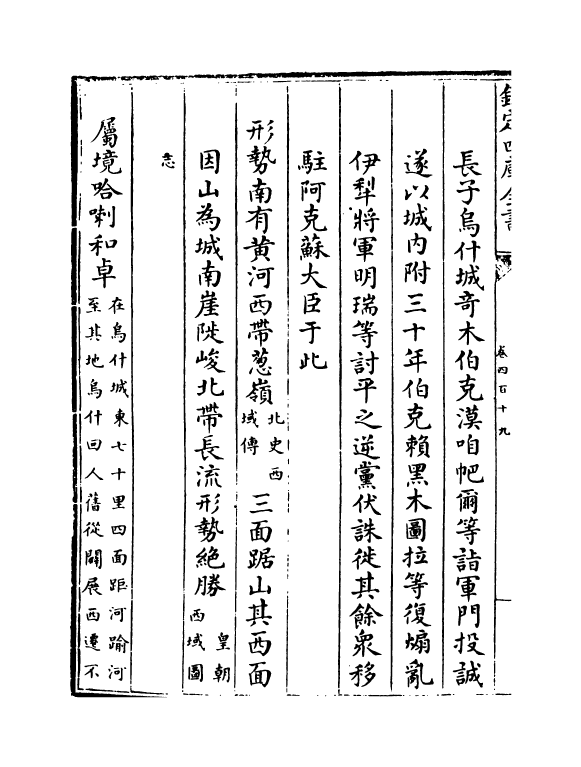 欽定四庫全書
卷四百十九
長子烏什城竒木伯克漠咱帊爾等詣軍門投誠
遂以城内附三十年伯克賴黑木圖拉等復煽亂
伊犁將軍明瑞等討平之逆黨伏誅徙其餘衆移
駐阿克蘇大臣于此
形勢南有黄河西帶葱嶺北史西域傳三面踞山其西面
因山為城南崖陡峻北帶長流形勢絶勝皇朝西域圖
志
屬境哈喇和卓在烏什城東七十里四面距河踰河
至其地烏什回人舊從闢展西遷不